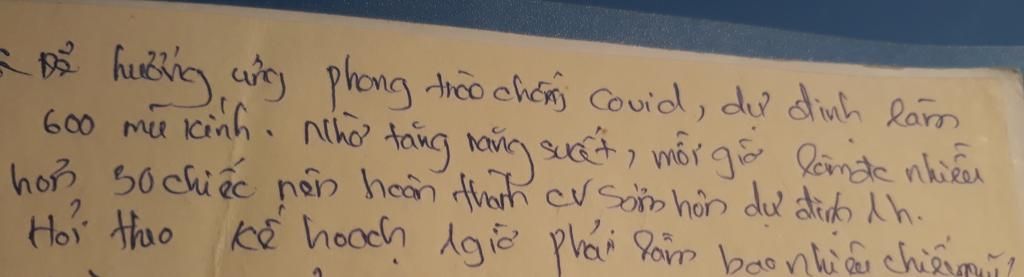 Để hưởng ứng phong trào chống Covid, dự định làm
600 mũ kính. Nhờ tăng năng suất, mỗi giờ làm đc nhiều
hơn 30 chiếc nên hoàn thành CV sớm hơn dự định 1h.
Hỏi theo kế hoạch 1giờ phải làm bao nhiêu chiếc mũ?